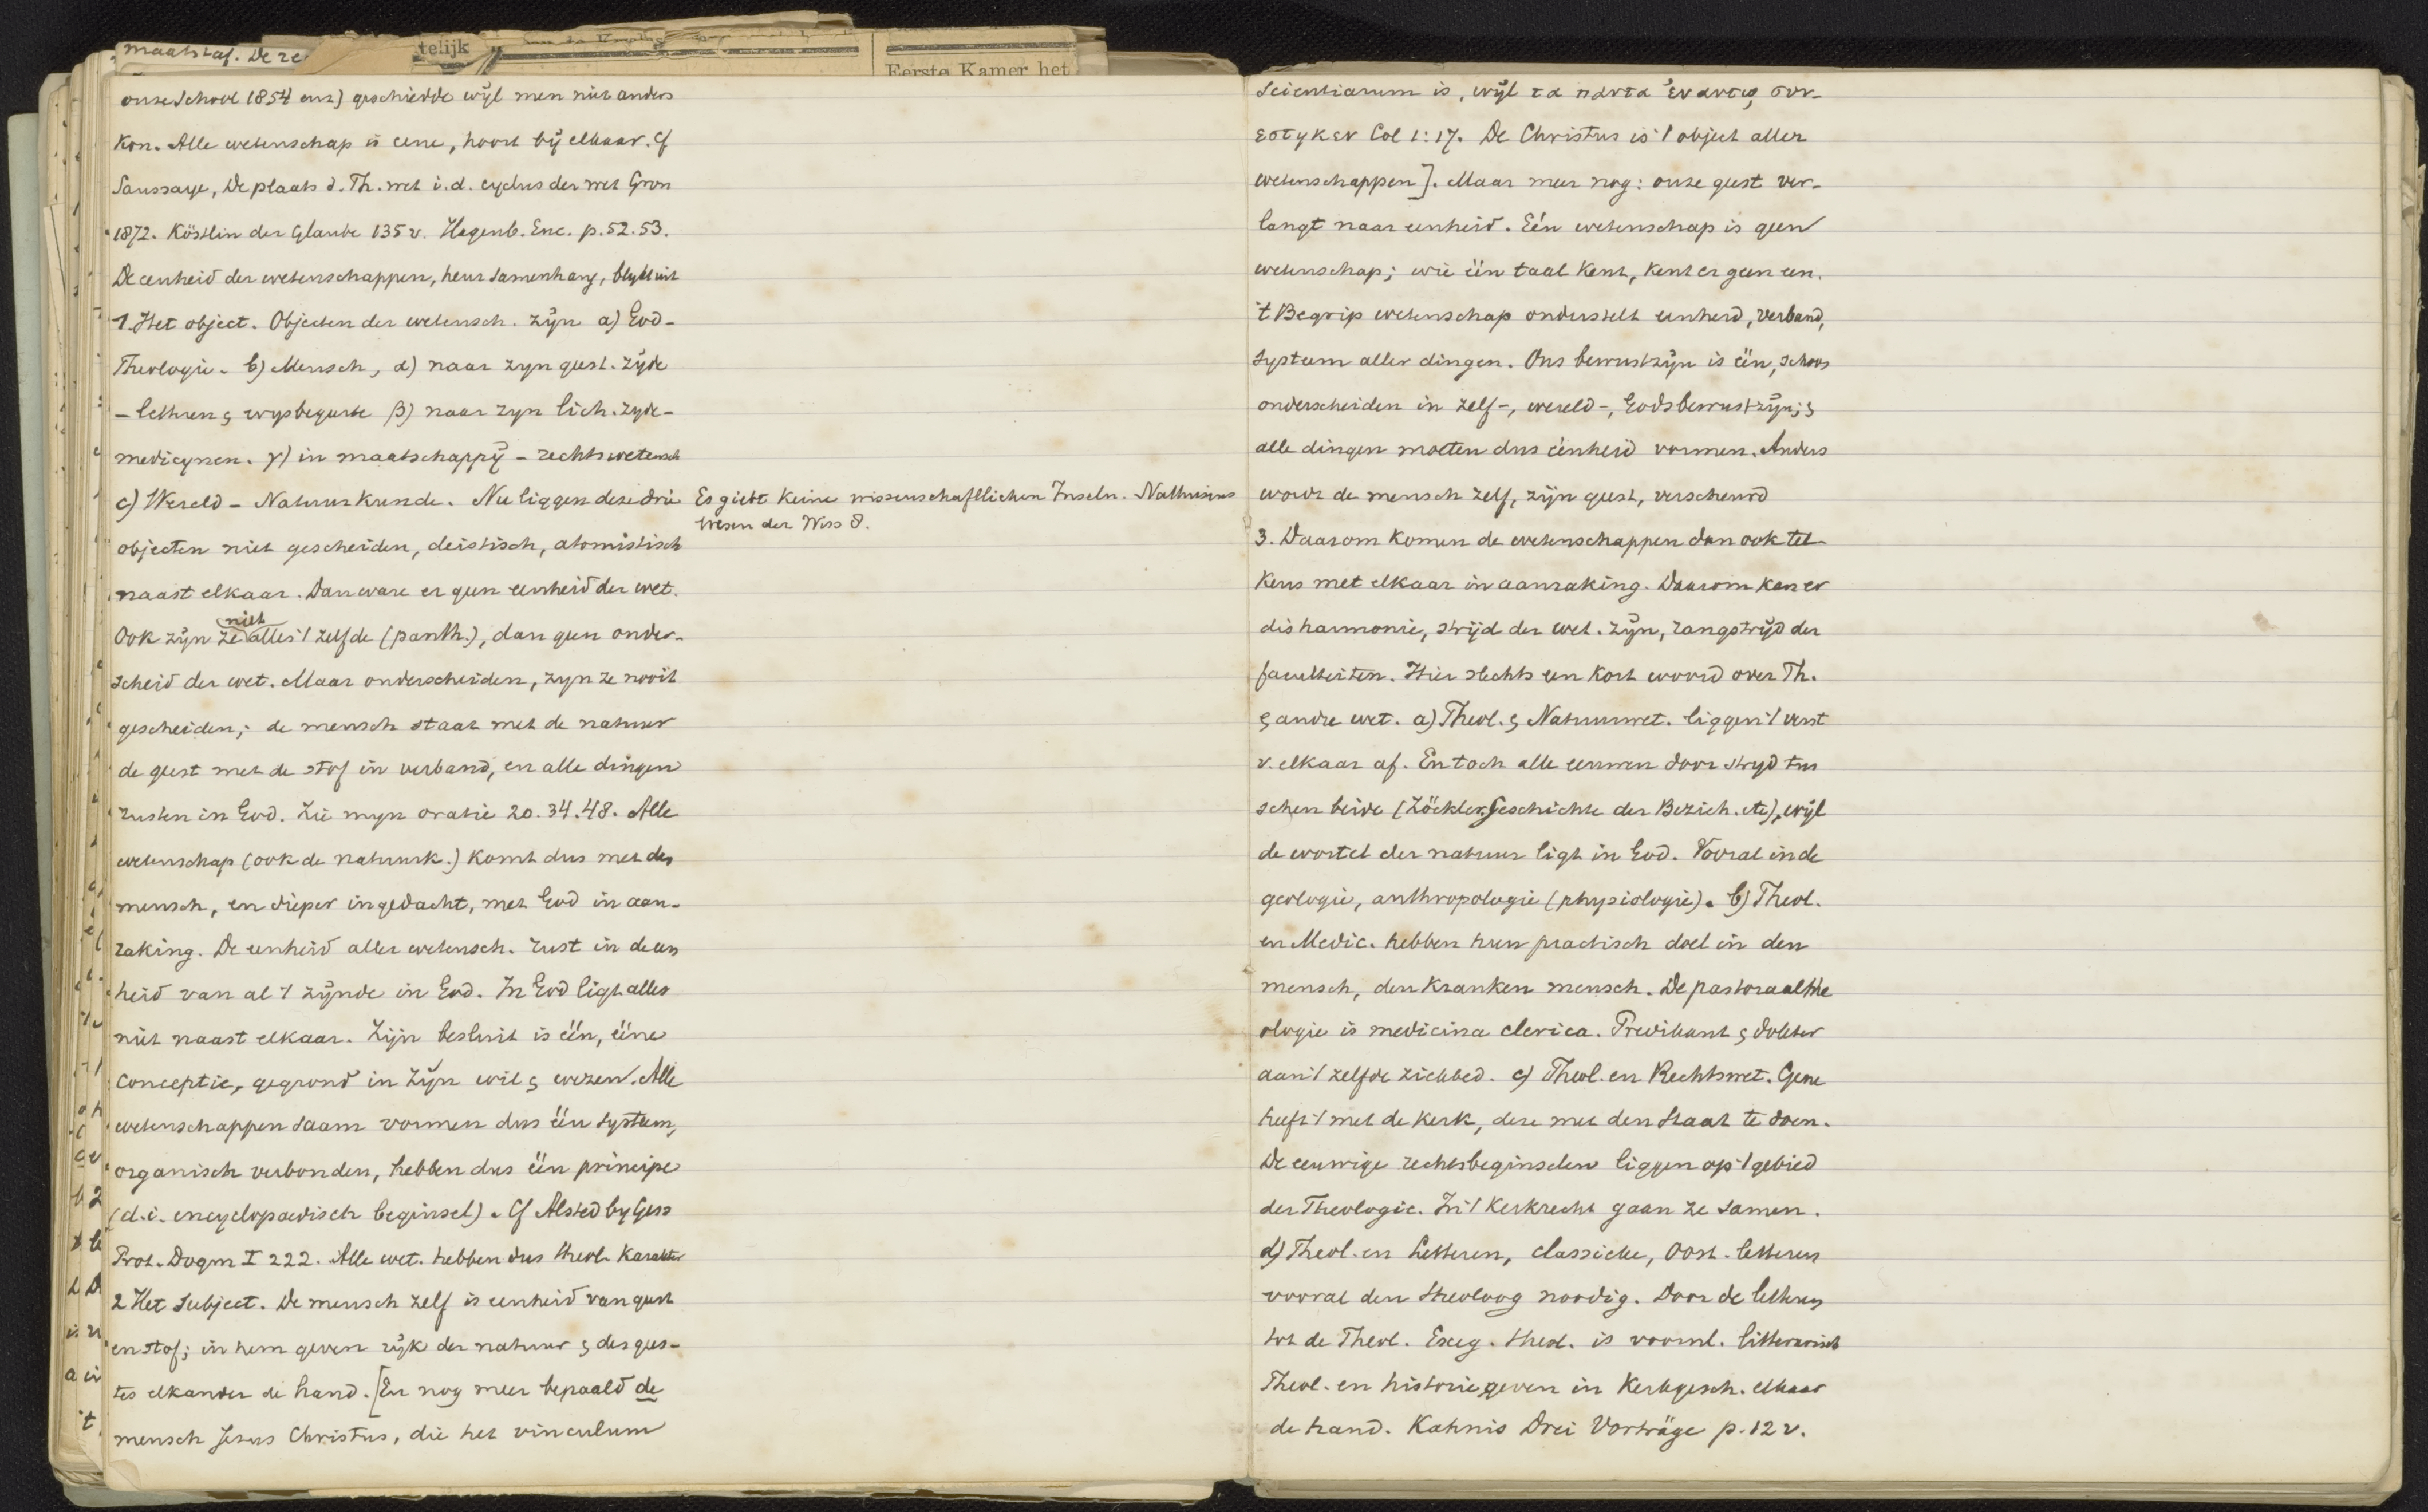 maatstaf. De re
telijk
Eerste Kamer het
onze School 1854 enz) geschiedde wijl men niet anders
kon. Alle wetenschap is eene, hoort bij elkaar. Cf
Saussaye, De plaats d. Th. wet i.d. cyclus der wet Gron
1872. Köstlin der Glaube 135 v. Hagenb. Enc. p. 52. 53.
De eenheid der wetenschappen, heur samenhang, blijkt uit
1. Het object. Objecten der wetensch. zijn a) God –
Theologie – b) Mensch, α) naar zyn geest. zijde
– letteren & wysbegeerte β) naar zyn lich. zyde –
medicynen. γ) in maatschappij – rechtswetensch
c) Wereld – Natuurkunde. Nu liggen deze drie
objecten niet gescheiden, deistisch, atomistisch
naast elkaar. Dan ware er geen eenheid der wet.
niet
Ook zijn ze alles 't zelfde (panth.), dan geen onder-
scheid der wet. Maar onderscheiden, zyn ze nooit
gescheiden; de mensch staat met de natuur
de geest met de stof in verband, en alle dingen
rusten in God. Zie myn oratie 20. 34. 48. Alle
wetenschap (ook de natuurk.) komt dus met den
mensch, en dieper ingedacht, met God in aan-
raking. De eenheid aller wetensch. rust in de een
heid van al 't zijnde in God. In God ligt alles
niet naast elkaar. Zijn besluit is één, ééne
conceptie, gegrond in Zijn wil & wezen. Alle
wetenschappen saam vormen dus één systeem,
organisch verbonden, hebben dus één principe
(d.i. encyclopaedisch beginsel). Cf Alsted by Gass
Prot. Dogm I 222. Alle wet. hebben dus theol. karakter
2 Het Subject. De mensch zelf is eenheid van geest
en stof; in hem geven rijk der natuur & des gees-
tes elkander de hand. [En nog meer bepaald de
mensch Jezus Christus, die het vinculum
Es giebt keine wissenschaftlichen Inseln. Nathusius
Wesen der Wiss 8.
scientiarum is, wijl τα παντα ἐν αυτῳ συν-
εστηκεν Col 1:17. De Christus is 't object aller
wetenschappen]. Maar meer nog: onze geest ver-
langt naar eenheid. Eén wetenschap is geen
wetenschap; wie één taal kent, kent er geen een.
't Begrip wetenschap onderstelt eenheid, verband,
systeem aller dingen. Ons bewustzijn is één, schoon
onderscheiden in zelf-, wereld-, Godsbewustzijn; &
alle dingen moeten dus éénheid vormen. Anders
wordt de mensch zelf, zijn geest, verscheurd
3. Daarom komen de wetenschappen dan ook tel-
kens met elkaar in aanraking. Daarom kan er
disharmonie, strijd der wet. zijn, rangstrijd der
faculteiten. Hier slechts een kort woord over Th.
& andre wet. a) Theol. & Natuurwet. liggen 't verst
v. elkaar af. En toch alle eeuwen door stryd tus
schen beide (Zöckler, Geschichte der Bezieh. etc), wijl
de wortel der natuur ligt in God. Vooral in de
geologie, anthropologie (physiologie). b) Theol.
en Medic. hebben hun practisch doel in den
mensch, den kranken mensch. De pastoraalthe
ologie is medicina clerica. Predikant & dokter
aan 't zelfde ziekbed. c) Theol. en Rechtswet. Gene
heeft 't met de kerk, deze met den Staat te doen.
De eeuwige rechtsbeginselen liggen op 't gebied
der Theologie. In 't Kerkrecht gaan ze samen.
d) Theol. en Letteren, classieke, Oost. letteren
vooral den theoloog noodig. Door de letteren
tot de Theol. Exeg. theol. is vooral. litterarisch
Theol. en historie geven in Kerkgesch. elkaar
de hand. Kahnis Drei Vorträge p. 12 v.